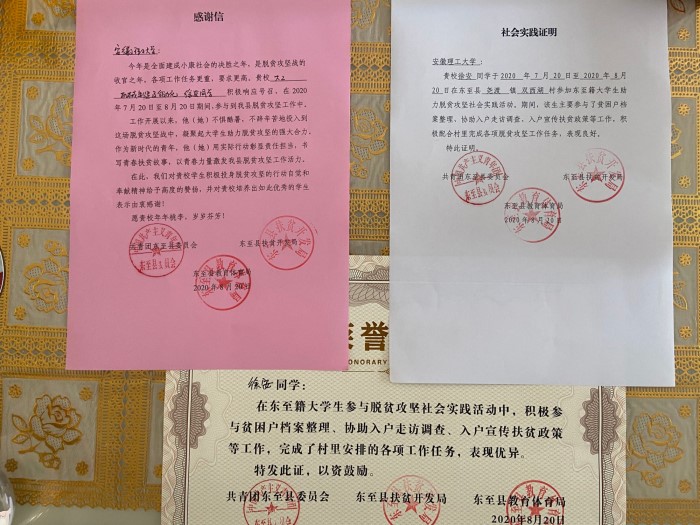 感谢信
安徽理工大学：
今年是全面建成小康社会的决胜之年，是脱贫攻坚战的
收官之年，各项工作任务更重，要求更高。贵校
徐安同学 积极响应号召，在2020
年7月20日至8月20日期间，参与到我县脱贫攻坚工作中。
工作开展以来，他（她）不惧酷暑、不辞辛苦地投入到
这场脱贫攻坚战中，凝聚起大学生助力脱贫攻坚的强大合力。
作为新时代的青年，他（她）用实际行动彰显责任担当，书
写青春扶贫故事，以青春力量激发我县脱贫攻坚工作活力。
在此，我们对贵校学生积极投身脱贫攻坚的行动自觉和
奉献精神给予高度的赞扬，并对贵校培养出如此优秀的学生
表示由衷感谢！
愿贵校年年桃李，岁岁芬芳！
共青团东至县委员会 东至县扶贫开发局
东至县教育体育局
2020年8月20日
社会实践证明
安徽理工大学：
贵校徐安同学于2020年7月20日至2020年8月
20日在东至县尧渡镇双西湖村参加东至籍大学生助
力脱贫攻坚社会实践活动。期间，该生主要参与了贫困户档
案整理、协助入户走访调查、入户宣传扶贫政策等工作，积
极配合村里完成各项脱贫攻坚工作任务，表现良好。
特此证明。
共青团东至县委员会 东至县扶贫开发局
东至县教育体育局
2020年8月20日
荣誉
HONORARY
徐安同学：
在东至籍大学生参与脱贫攻坚社会实践活动中，积极参
与贫困户档案整理、协助入户走访调查、入户宣传扶贫政策
等工作，完成了村里安排的各项工作任务，表现优异。
特发此证，以资鼓励。
共青团东至县委员会 东至县扶贫开发局 东至县教育体育局
2020年8月20日